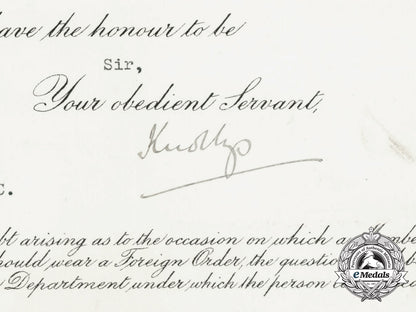 have the honour to be
Sir,
Your obedient Servant,
Knollys
C.
bt arising as to the occasion on which a Membe
should wear a Foreign Order, the question
Department under which the person
eMedals